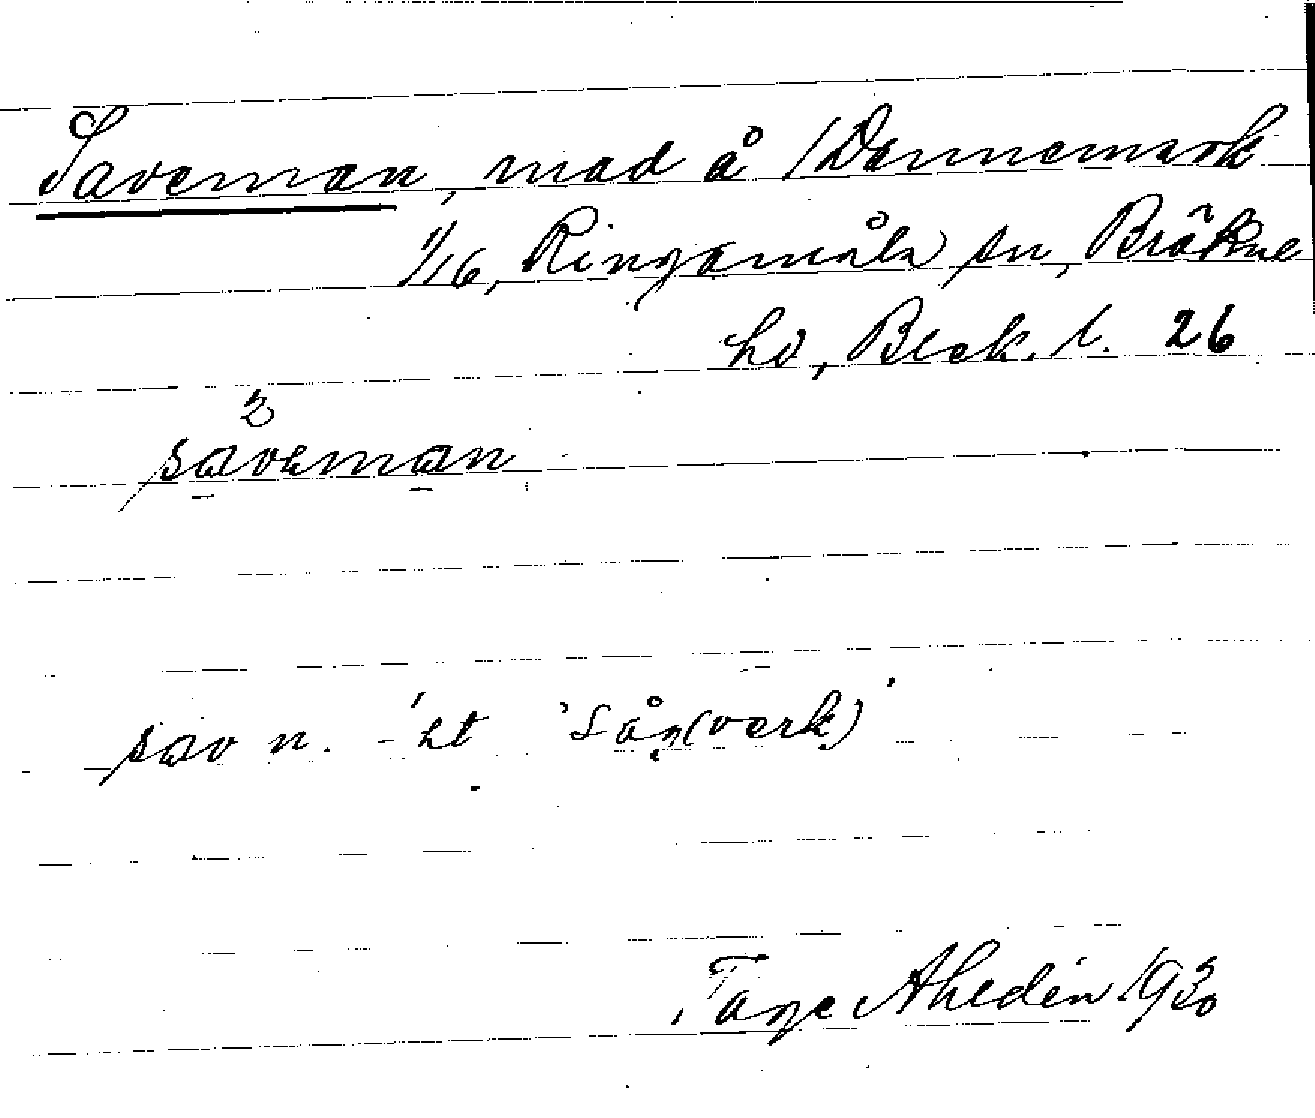 Saveman, mad å /Dannemark
1/16, Ringamåla sn, Bräkne
hd, Blek. l. 26
2
saveman
sav n. - ht 'Såg(verk)'
Tage Ahldén 1930